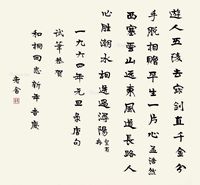 遊人五陵去寶劍直千金分
手脫相贈平生一片心孟浩然
西塞雲山遠東風道長路人
心勝潮水相送過潯陽皇甫冉
一九六四年元旦錄唐句
試筆恭賀
和相同志新年吉慶
老舍